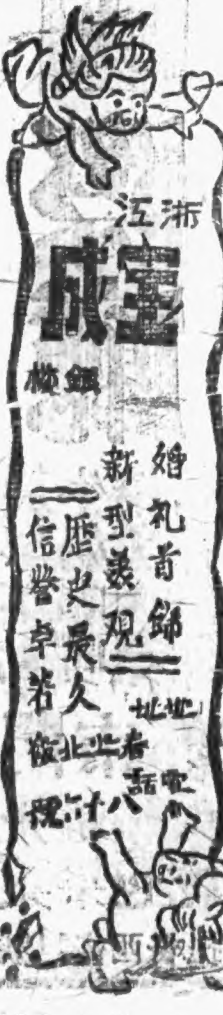 浙江
宝成
銀楼
婚礼首飾
新型美观
歷史最久
信誉卓著
地址
電話
八十六號